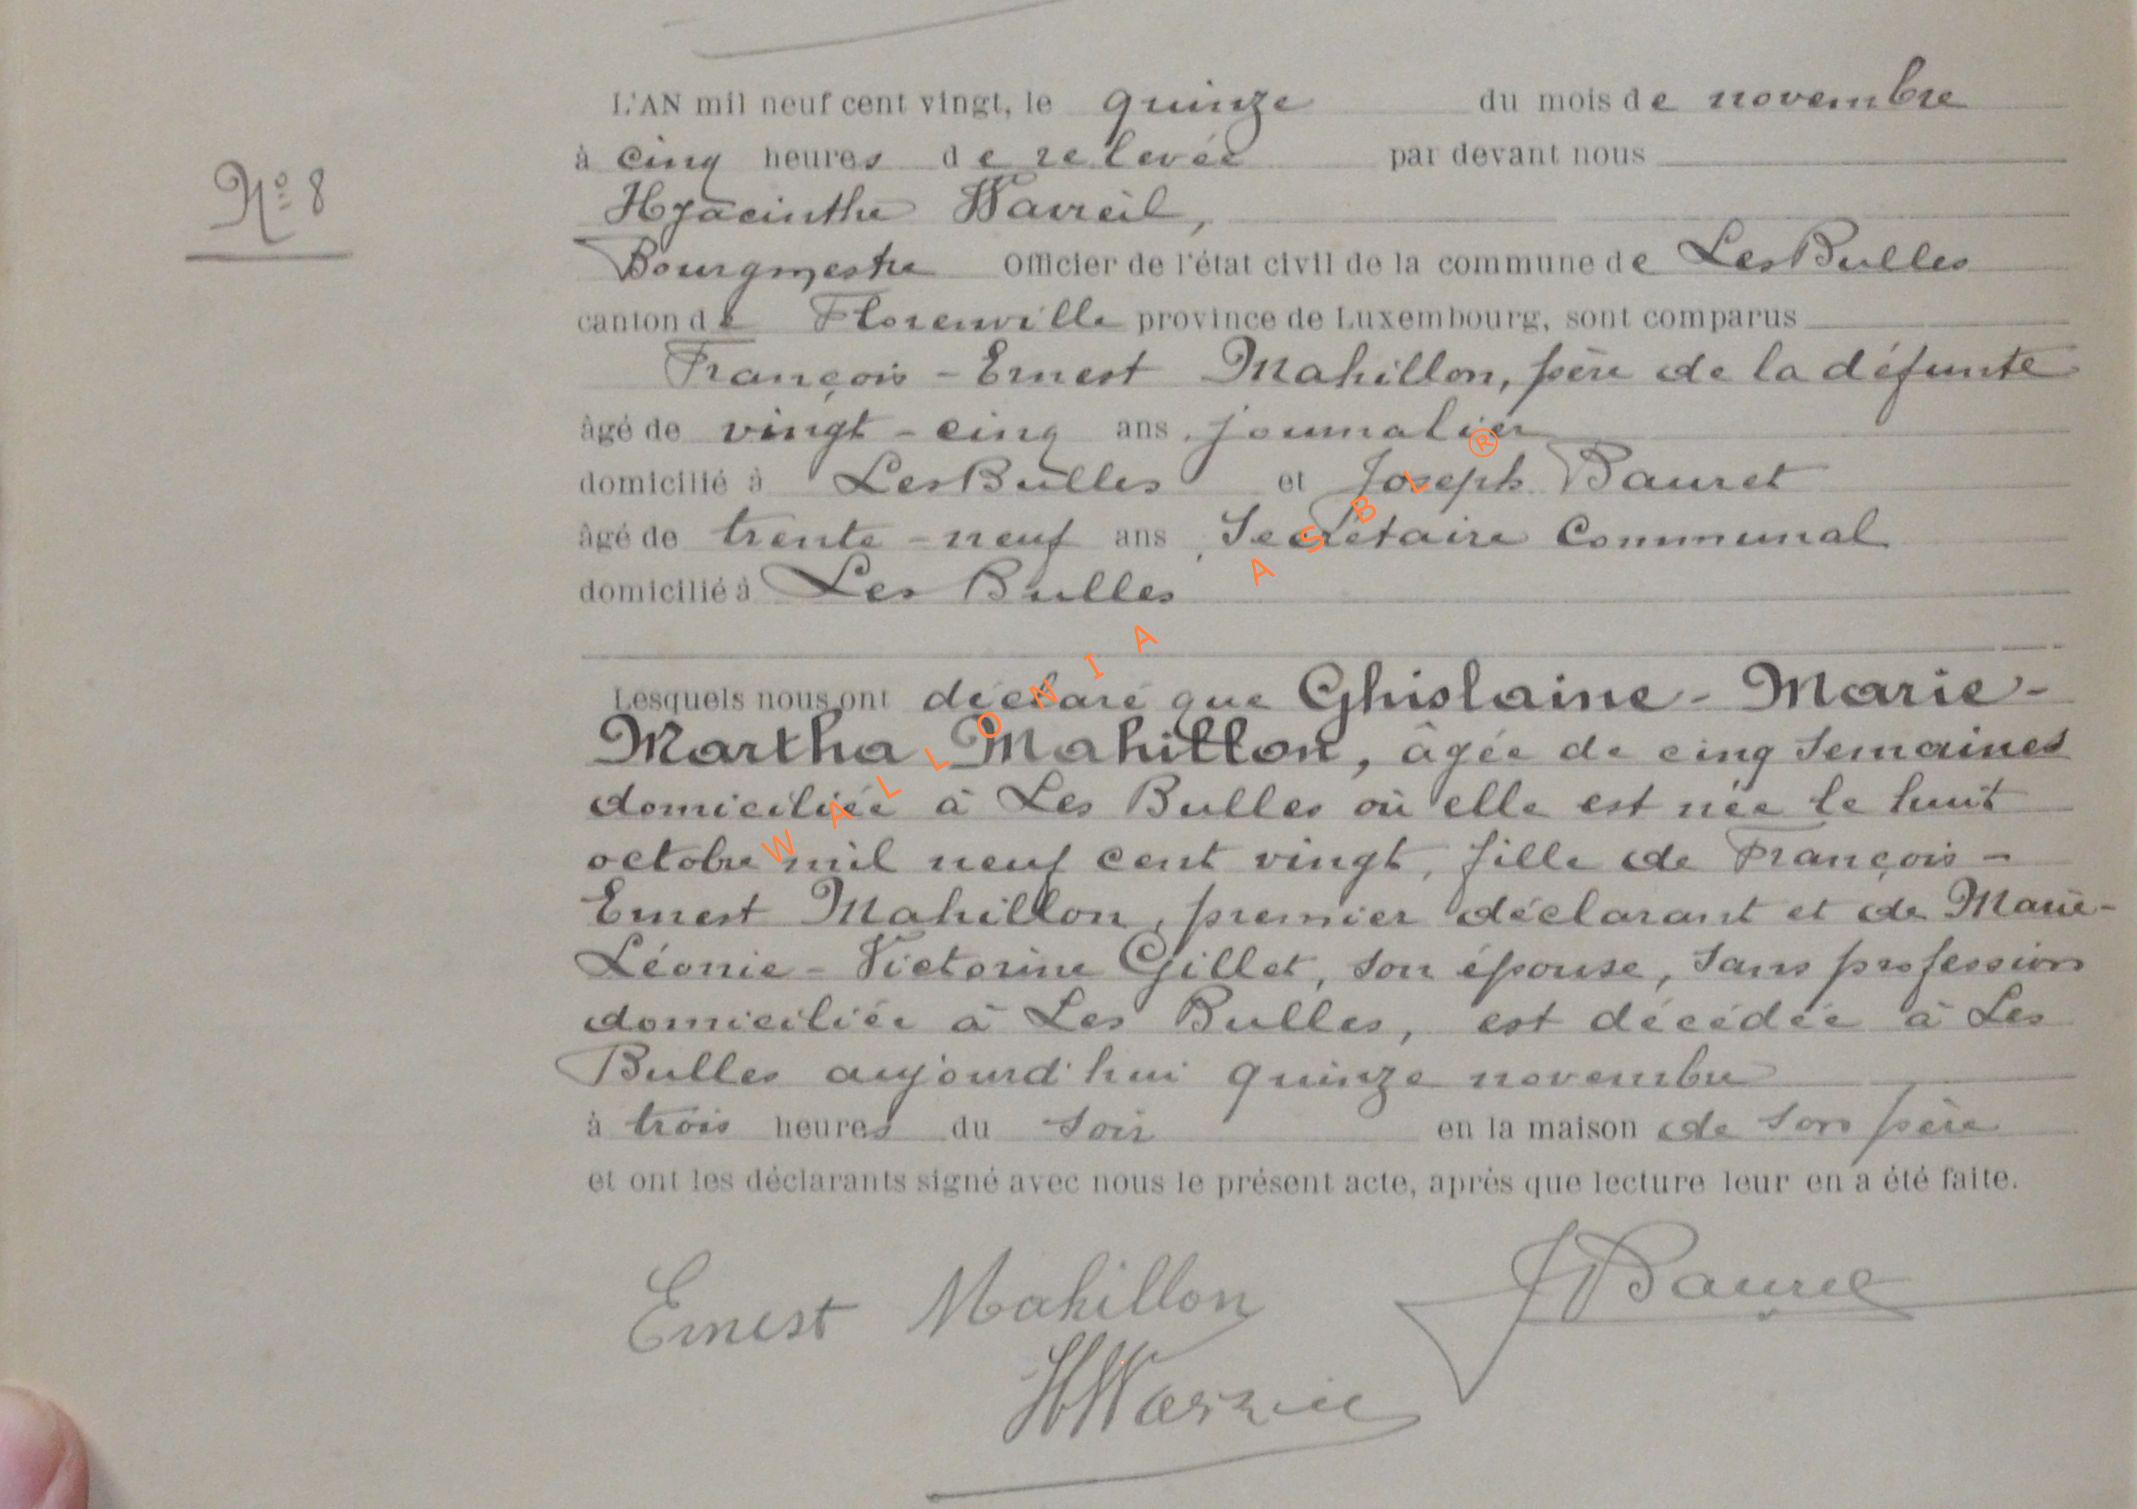 N° 8
L'AN mil neuf cent vingt, le quinze du mois de novembre
à cinq heures de relevée par devant nous
Hyacinthe Wavreil,
Bourgmestre Officier de l'état civil de la commune de Les Bulles
canton de Florenville province de Luxembourg, sont comparus
François - Ernest Mahillon, père de la défunte
âgé de vingt - cinq ans, journalier
domicilié à Les Bulles et Joseph Bauret
âgé de trente - neuf ans, Secrétaire Communal
domicilié à Les Bulles
Lesquels nous ont déclaré que Ghislaine - Marie -
Martha Mahillon, âgée de cinq semaines
domiciliée à Les Bulles où elle est née le huit
octobre mil neuf cent vingt, fille de François -
Ernest Mahillon, premier déclarant et de Marie -
Léonie - Victorine Gillet, son épouse, sans profession
domiciliée à Les Bulles, est décédée à Les
Bulles aujourd'hui quinze novembre
à trois heures du soir en la maison de son père
et ont les déclarants signé avec nous le présent acte, après que lecture leur en a été faite.
Ernest Mahillon JBauret
WALLONIA ASBL ®